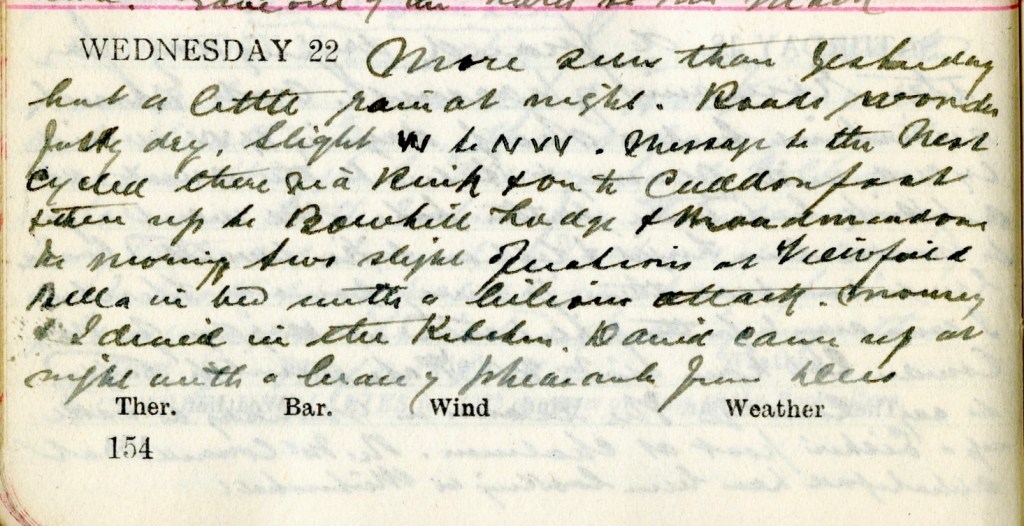 WEDNESDAY 22 More sun than yesterday
but a little rain at night. Roads wonder
fully dry. Slight W to NW. Message to the Nest
Cycled there via Rink & on to Caddonfoot
& then up to Bowhill Lodge & Broadmeadows
in morning two slight operations at Viewfield
Bella in bed with a bilious attack. Mousey
& I dined in the Kitchen. David came up at
night with a brace of pheasants from
Ther. Bar. Wind Weather
154